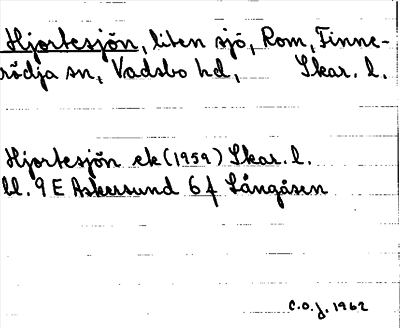 Hjortesjön, liten sjö, Rom, Finne-
rödja sn, Vadsbo hd, Skar. l.
Hjortesjön ek (1959) Skar. l.
bl. 9 E Askersund 6 f Långåsen
C.O.J. 1962